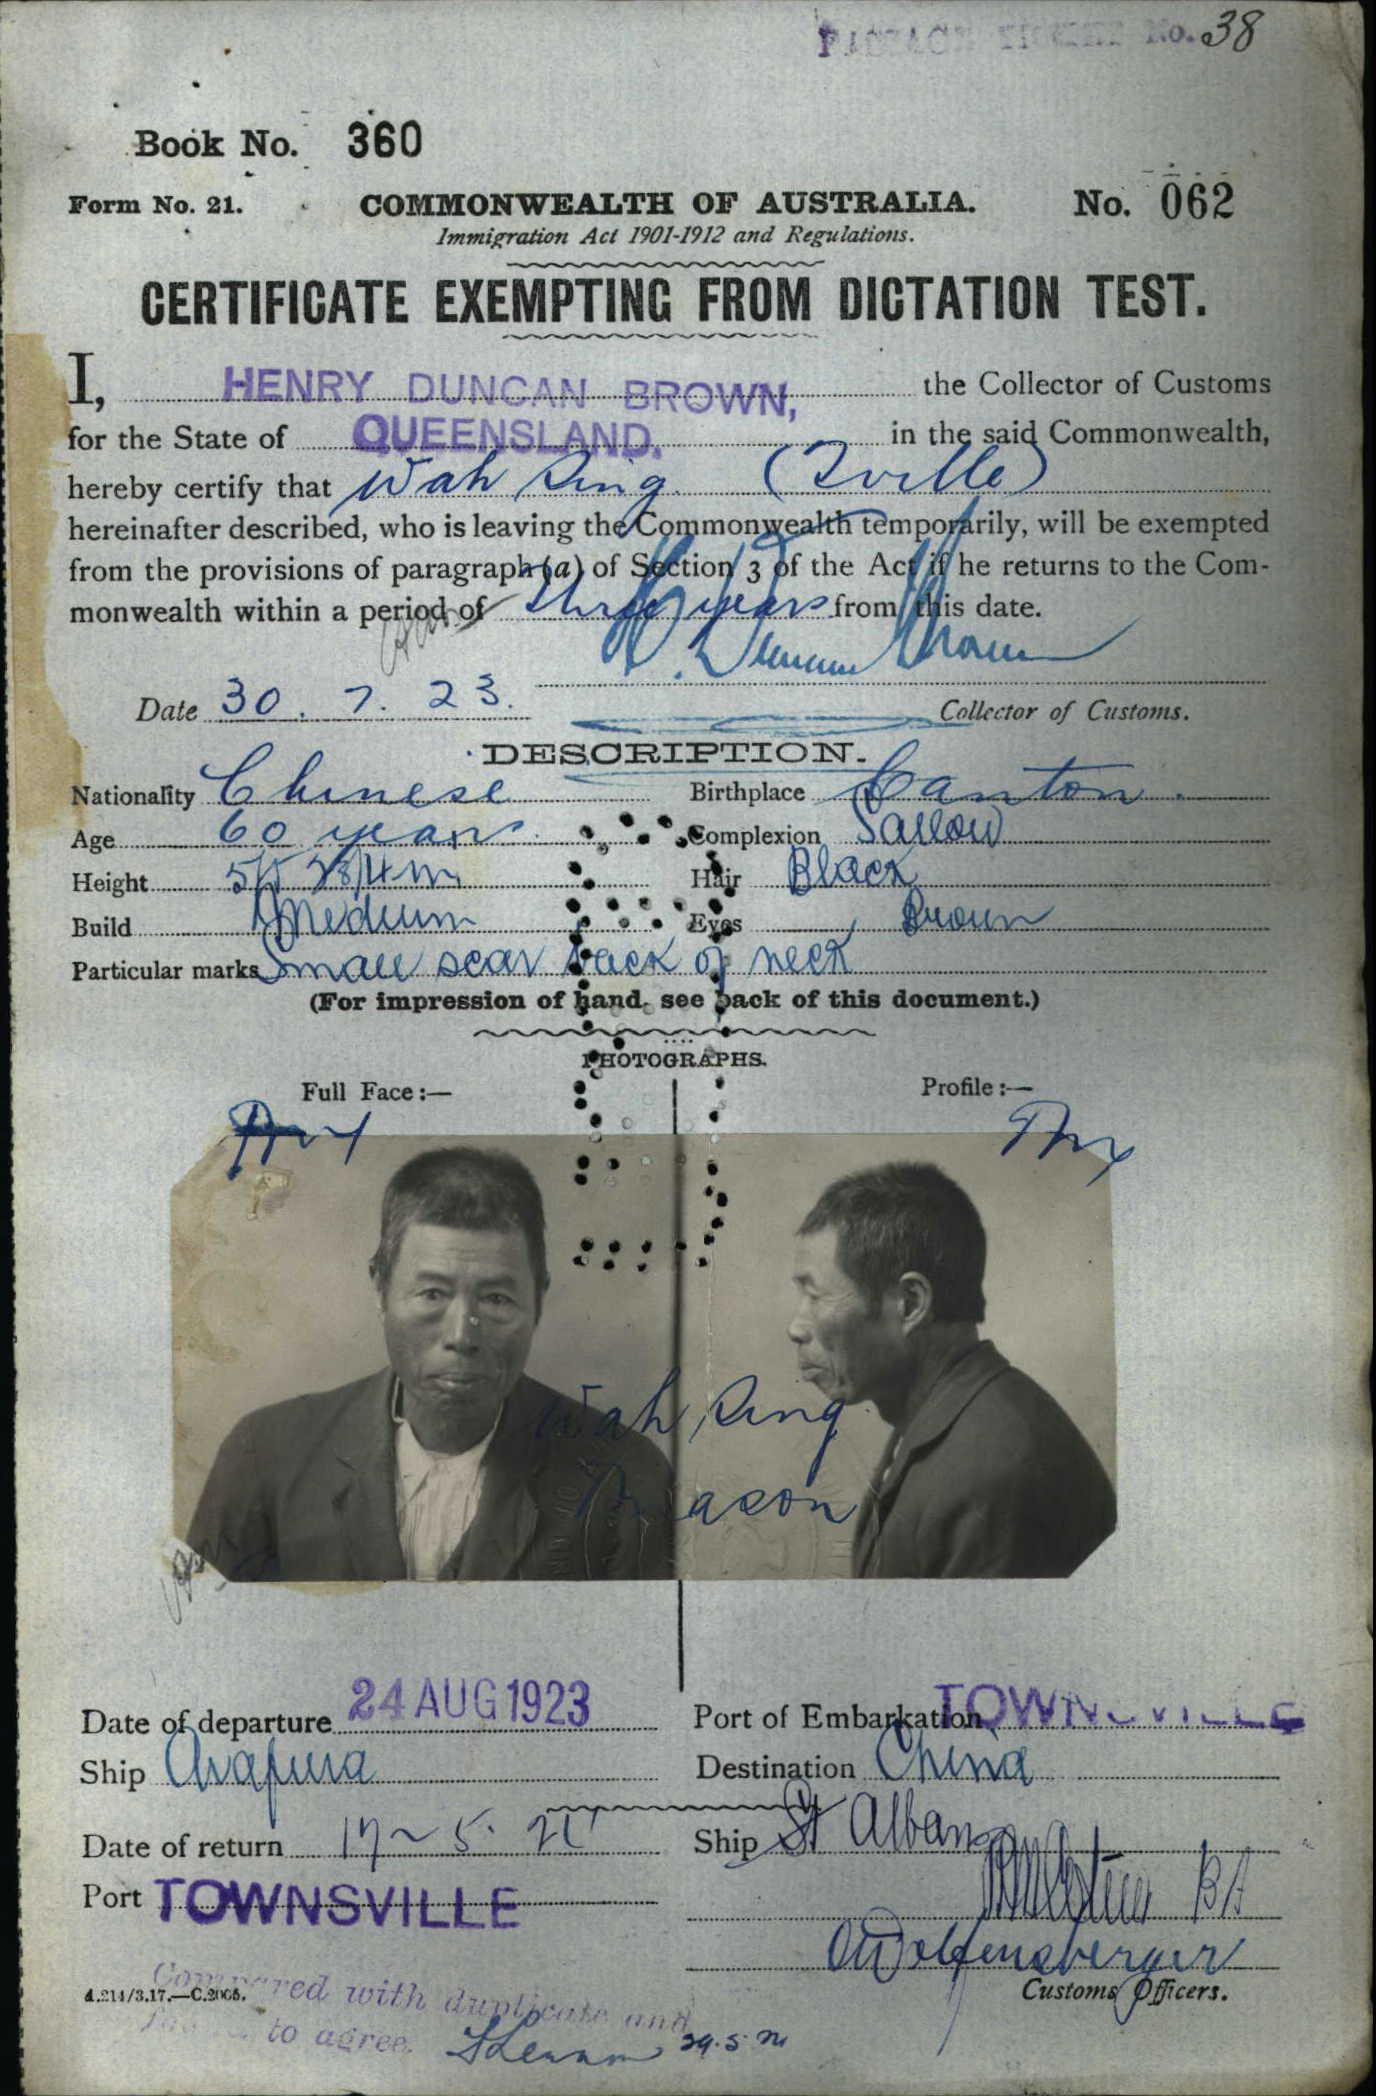 No. 38
Book No. 360
Form No. 21. COMMONWEALTH OF AUSTRALIA. No. 062
Immigration Act 1901-1912 and Regulations.
CERTIFICATE EXEMPTING FROM DICTATION TEST.
I, HENRY DUNCAN BROWN, the Collector of Customs
for the State of QUEENSLAND. in the said Commonwealth,
hereby certify that Wah Sing (Tville)
hereinafter described, who is leaving the Commonwealth temporarily, will be exempted
from the provisions of paragraph (a) of Section 3 of the Act if he returns to the Com-
monwealth within a period of three years from this date.
H. Duncan Brown
Date 30. 7. 23. Collector of Customs.
DESCRIPTION.
Nationality Chinese Birthplace Canton.
Age 60 years. Complexion Sallow
Height 5ft 2 3/4 in Hair Black
Build Medium Eyes Brown
Particular marks Small scar back of neck
(For impression of hand, see back of this document.)
PHOTOGRAPHS.
Full Face:— Profile:—
Wah Sing
Mason
Date of departure 24 AUG 1923 Port of Embarkation TOWNSVILLE
Ship Arafura Destination China
Date of return 17 - 5. Ship St Albans
Port TOWNSVILLE
Customs Officers.
A.214/3.17.—C.2005.
Compared with duplicate and
to agree. 29.5.